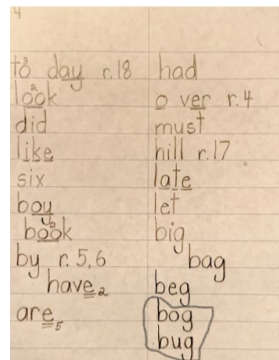 4
to day r.18
look
did
like
six
boy
book
by r. 5,6
have 2
are 5
had
o ver r. 4
must
hill r.17
late
let
big
bag
beg
bog
bug